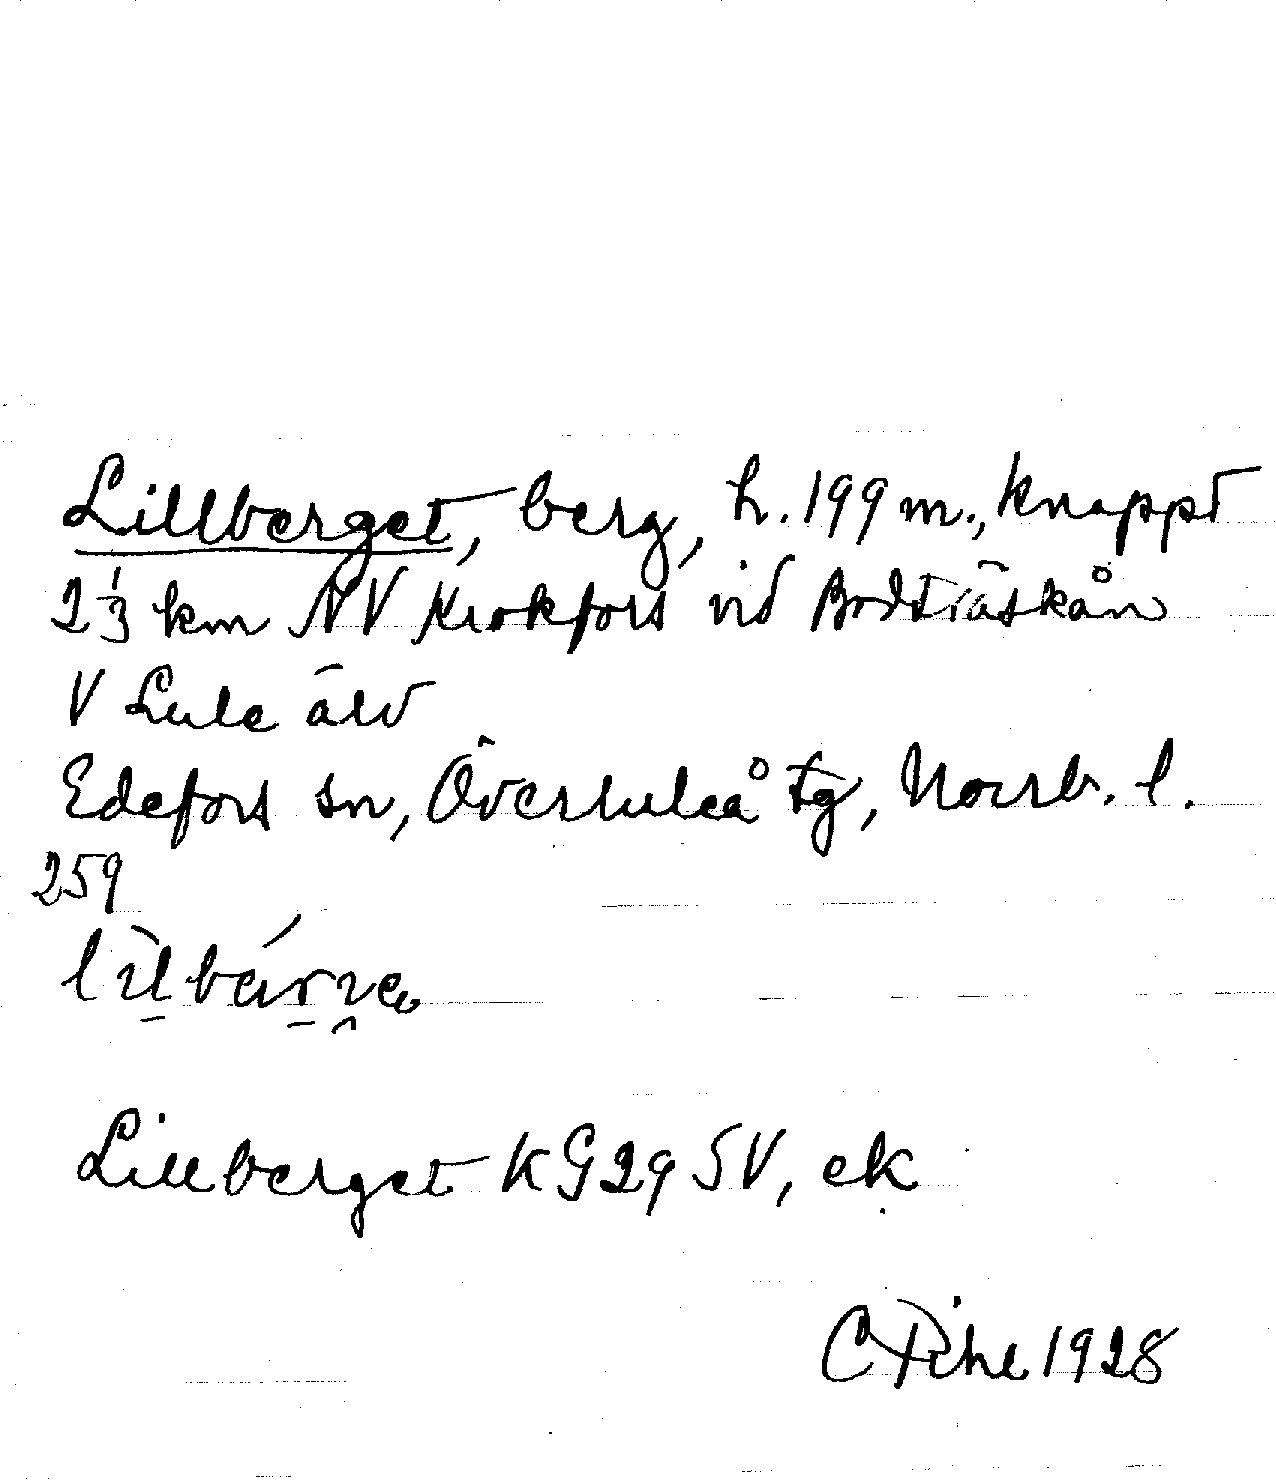 Lillberget, berg, h. 199 m., knappt
2 1/3 km NV Krokfors vid Bodträskån
V Lule älv
Edefors sn, Överluleå tg, Norrb. l.
259
Lillberget KG29SV, ek
C Pihl 1928